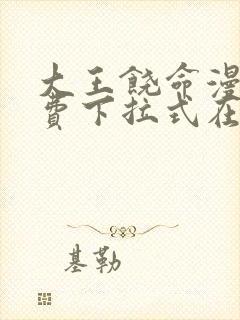 大王饶命漫
费下拉式在
基勒